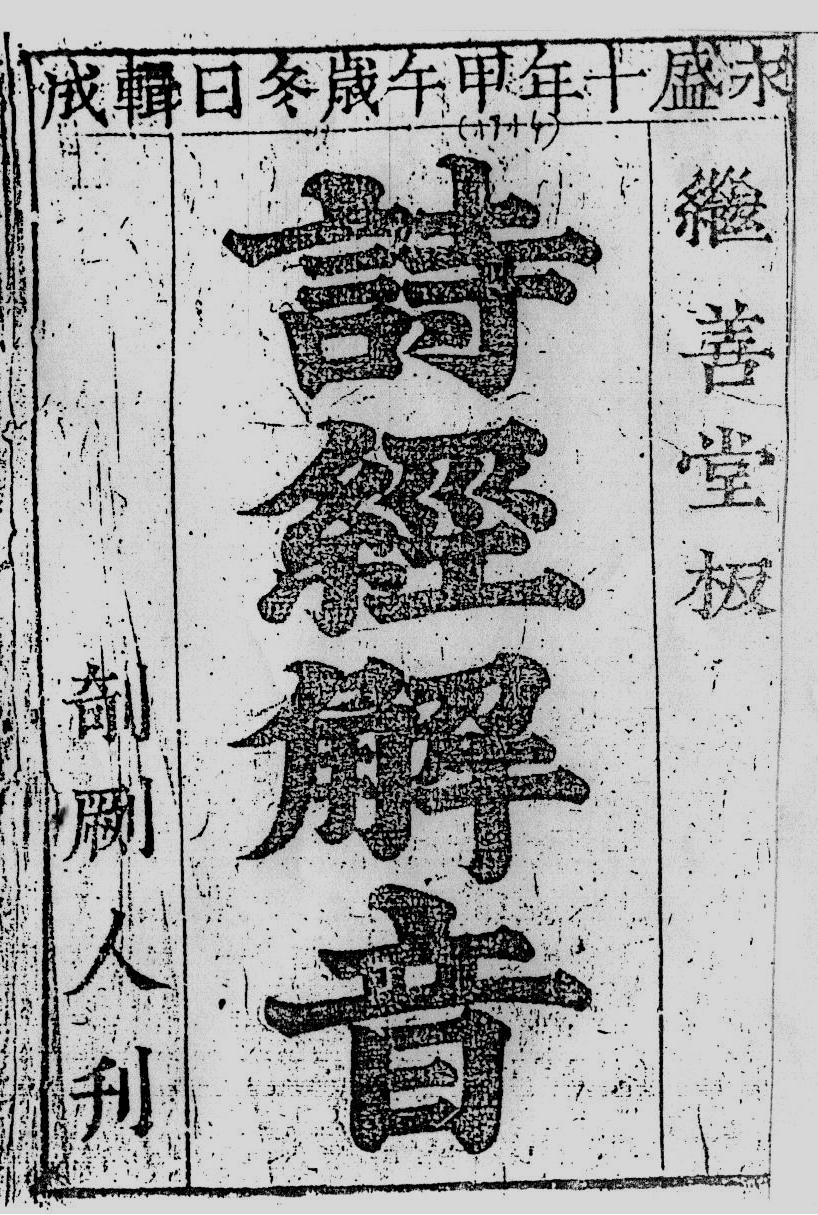 永盛十年甲午歲冬日輯成
(1714)
繼善堂板
詩經解音
剞劂人刊